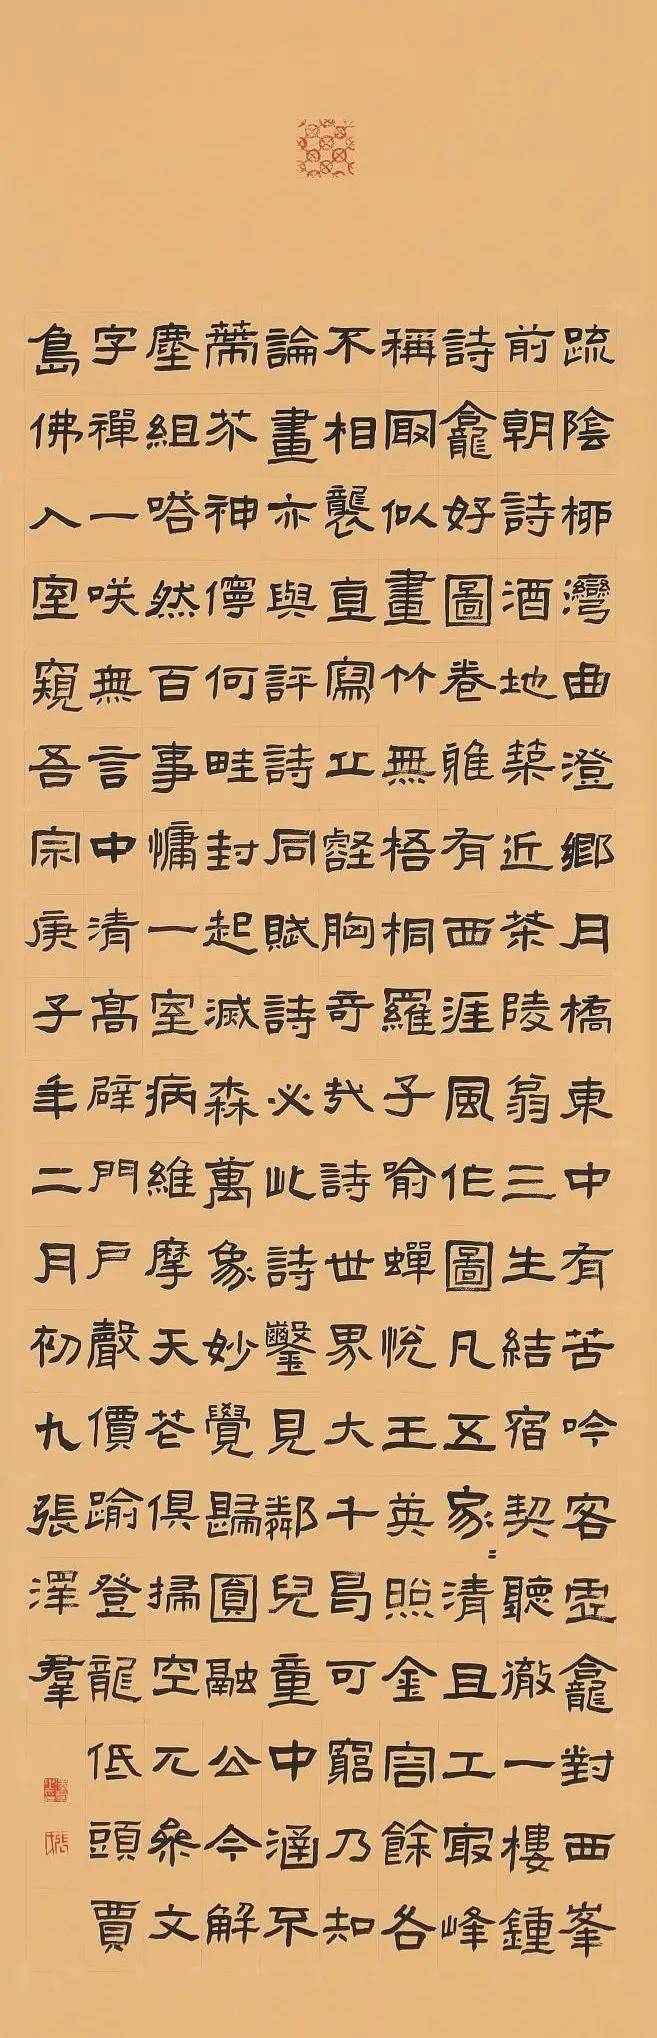 疏陰柳灣曲澄鄉月橋東中有苦吟客虛龕對西峯
前朝詩酒地築近茶陵翁三生結宿契聽徹一樓鍾
詩龕好圖卷雖有西涯風作圖凡五家=清且工最峰
稱取似畫竹無梧桐羅子喻蟬悅王英照金容餘各
不相襲直寫丘壑胸奇哉詩世界大千曷可窮乃知
論畫亦與評詩同賦詩必此詩鑿見鄰兒童中涵不
蔕芥神儜何畦封起滅森萬象妙覺歸圓融公今解
塵組嗒然百事慵一室病維摩天花俱掃空兀參文
字禪一咲無言中清高辟門戶聲價踰登龍低頭賈
島佛入室窺吾宗庚子年二月初九張澤羣